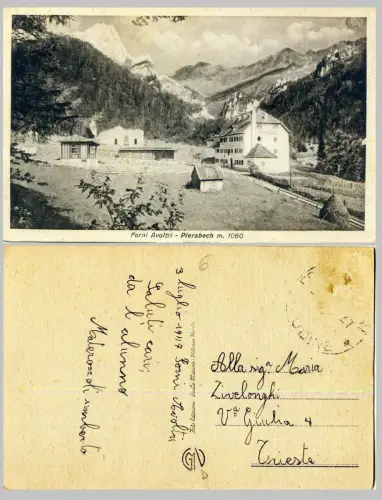 Forni Avoltri - Pierabech m. 1060
6
3 luglio 1947 Forni Avoltri
Saluti cari
da l'alunno
Materozoli umberto
UDINE
Alla sigra Maria
Zivelonghi
Va Giulia 4
Trieste